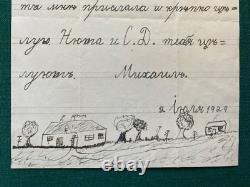 ты мнѣ прислала и крѣпко цѣ-
лую. Нюта и С.Д. тебя цѣ-
луютъ. Михаилъ.
2 Іюля 1929